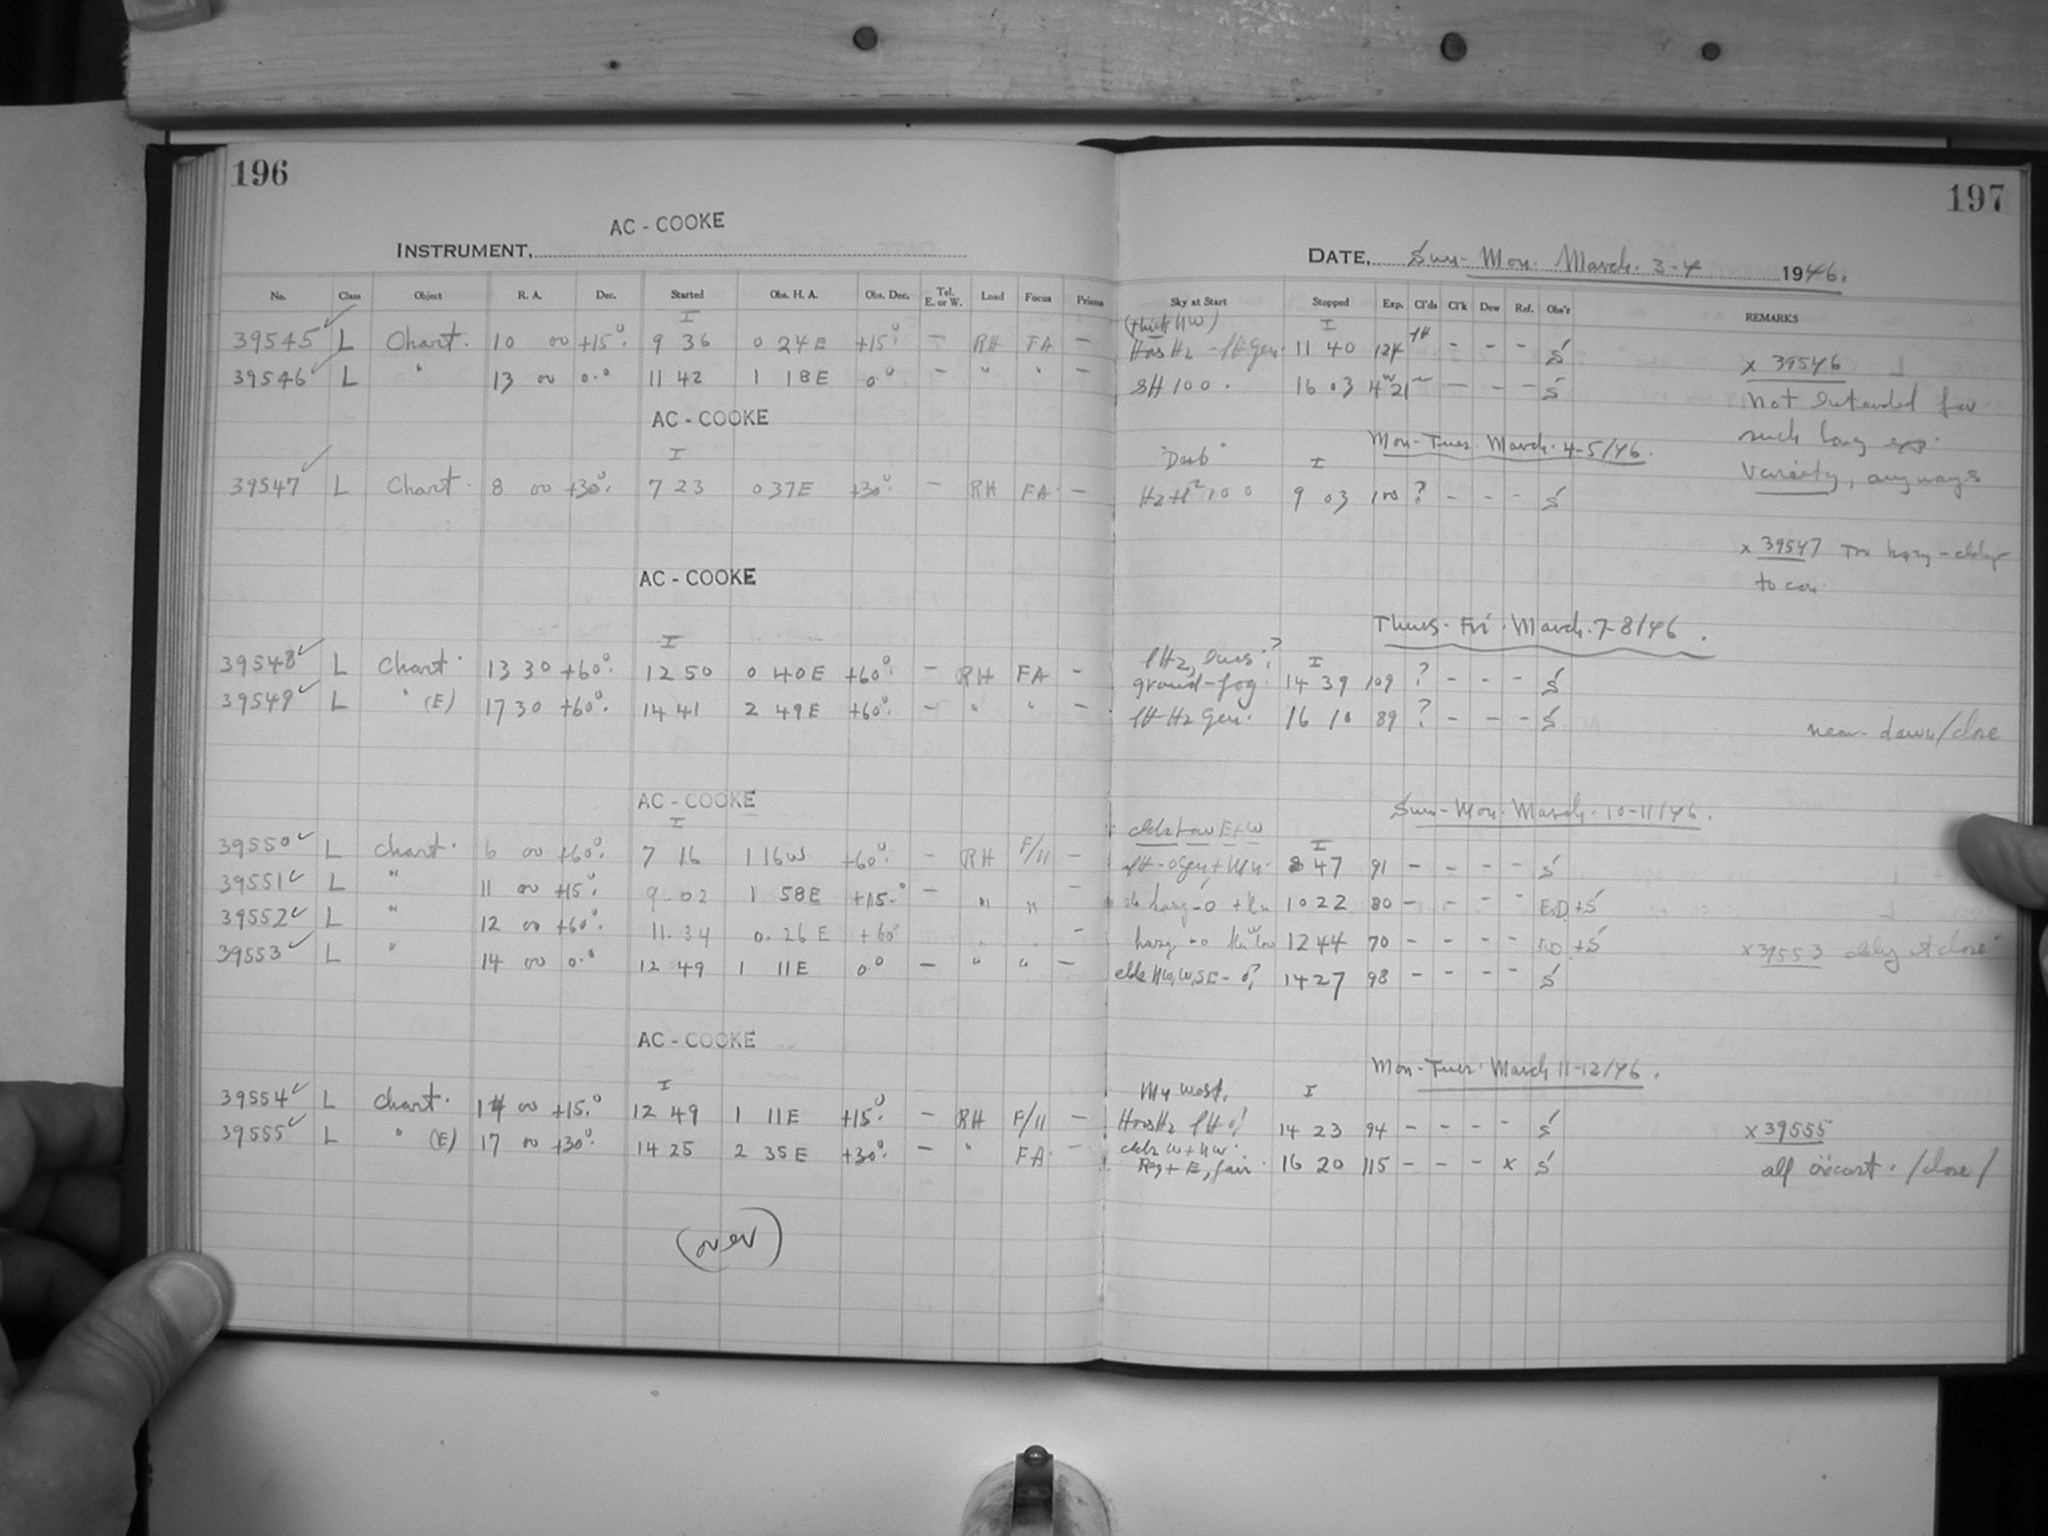 196
AC - COOKE
INSTRUMENT,
No. Class Object R. A. Dec. Started Obs. H. A. Obs. Dec. Tel. E. or W. Load Focus Prisms
I
39545 ✓ L Chart. 10 00 +15°. 9 36 0 24 E +15° – RH FA –
39546 ✓ L " 13 00 0.° 11 42 1 18 E 0° – " " –
AC - COOKE
I
39547 ✓ L Chart. 8 00 +30°. 7 23 0 37 E +30° – RH FA. –
AC - COOKE
I
39548 ✓ L Chart. 13 30 +60°. 12 50 0 40 E +60° – RH FA –
39549 ✓ L " (E) 17 30 +60°. 14 41 2 49 E +60° – " " –
AC - COOKE
I
39550 ✓ L Chart. 6 00 +60°. 7 16 1 16 W +60° – RH F/11 –
39551 ✓ L " 11 00 +15°. 9.02 1 58 E +15.° – " " –
39552 ✓ L " 12 00 +60°. 11.34 0.26 E +60° –
39553 ✓ L " 14 00 0.° 12 49 1 11 E 0.° – " " –
AC - COOKE
I
39554 ✓ L Chart. 14 00 +15.° 12 49 1 11 E +15°. – RH F/11 –
39555 ✓ L " (E) 17 00 +30°. 14 25 2 35 E +30°. – " FA. –
(over)
197
DATE, Sun - Mon. March. 3-4 1946.
Sky at Start Stopped Exp. Cl'ds Cl'k Dew Ref. Obs'r REMARKS
(thick NW) I
11 40 124 – – – S
SH 100. 16 03 – – – S
x 39546
not intended for
such long exp.
Variety, anyways
Mon - Tues. March. 4-5/46.
I
9 03 100 ? – – – S
x 39547 Too hazy - cldy
to con.
Thurs - Fri. March. 7-8/46.
I
ground-fog. 14 39 109 ? – – – S
Gen. 16 10 89 ? – – – S
near-dawn/close
Sun - Mon. March. 10-11/46.
clds low E+W I
8 47 91 – – – – S
10 22 80 – – – – +S
hazy 12 44 70 – – – – +S
clds NW, W, SE - 14 27 98 – – – – S
x 39553 cldy at close
Mon - Tues. March 11-12/46.
west. I
14 23 94 – – – – S
clds W + NW.
E, fair. 16 20 115 – – – x S
x 39555
all o'cast. /close/